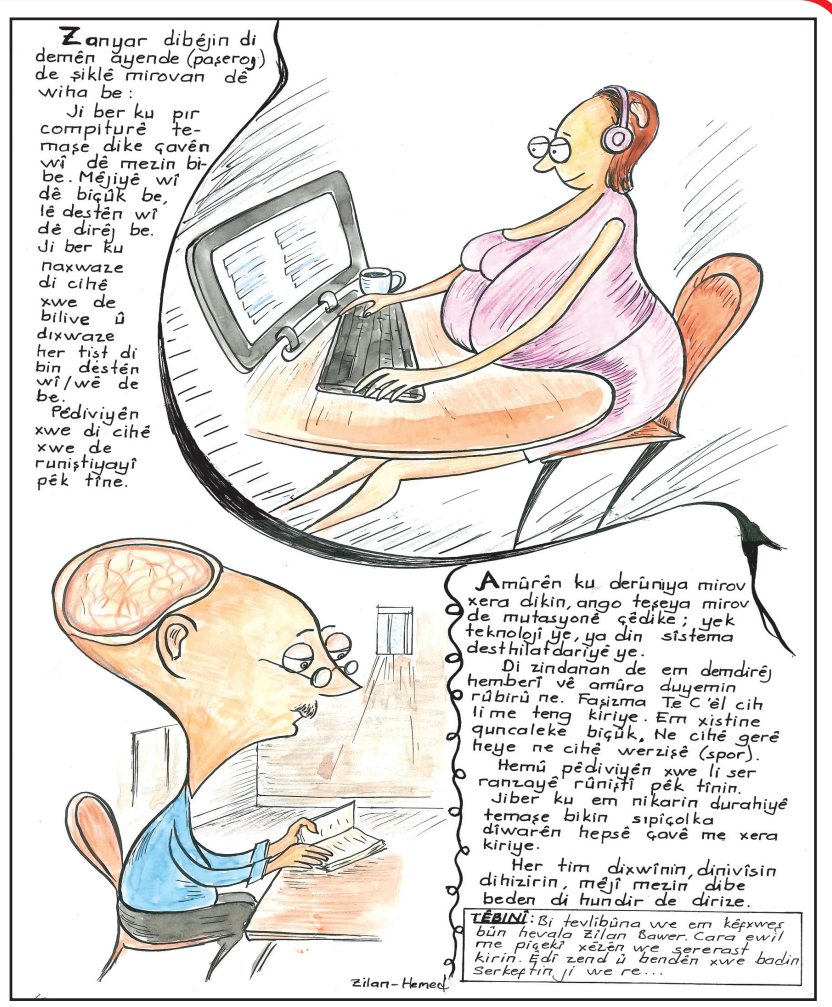 Zanyar dibêjin di
demên ayende (paşeroj)
de şiklê mirovan dê
wiha be :
Ji ber ku pir
compiturê te-
maşe dike çavên
wî dê mezin bi-
be. Mêjiyê wî
dê biçûk be,
lê destên wî
dê dirêj be.
Ji ber ku
naxwaze
di cihê
xwe de
bilive û
dixwaze
her tişt di
bin destên
wî/wê de
be.
Pêdiviyên
xwe di cihê
xwe de
runiştiyayî
pêk tîne.
Amûrên ku derûniya mirov
xera dikin, ango teşeya mirov
de mutasyonê çêdike ; yek
teknolojî ye, ya din sîstema
desthilatdariyê ye.
Di zindanan de em demdirêj
hemberî vê amûra duyemin
rûbirû ne. Faşizma Te C'êl cih
li me teng kiriye. Em xistine
quncaleke biçûk, Ne cihê gerê
heye ne cihê werzişê (spor).
Hemû pêdiviyên xwe li ser
ranzayê rûniştî pêk tînin.
Jiber ku em nikarin durahiyê
temaşe bikin sipîçolka
dîwarên hepsê çavê me xera
kiriye.
Her tim dixwînin, dinivîsin
dihizirin, mêjî mezin dibe
beden di hundir de dirize.
TÊBINÎ : Bi tevlibûna we em kêfxweş
bûn hevala Zîlan Bawer. Cara ewil
me piçekî xêzên we sererast
kirin. Êdî zend û bendên xwe badin
Serkeftin ji we re...
Zilan-Hemed